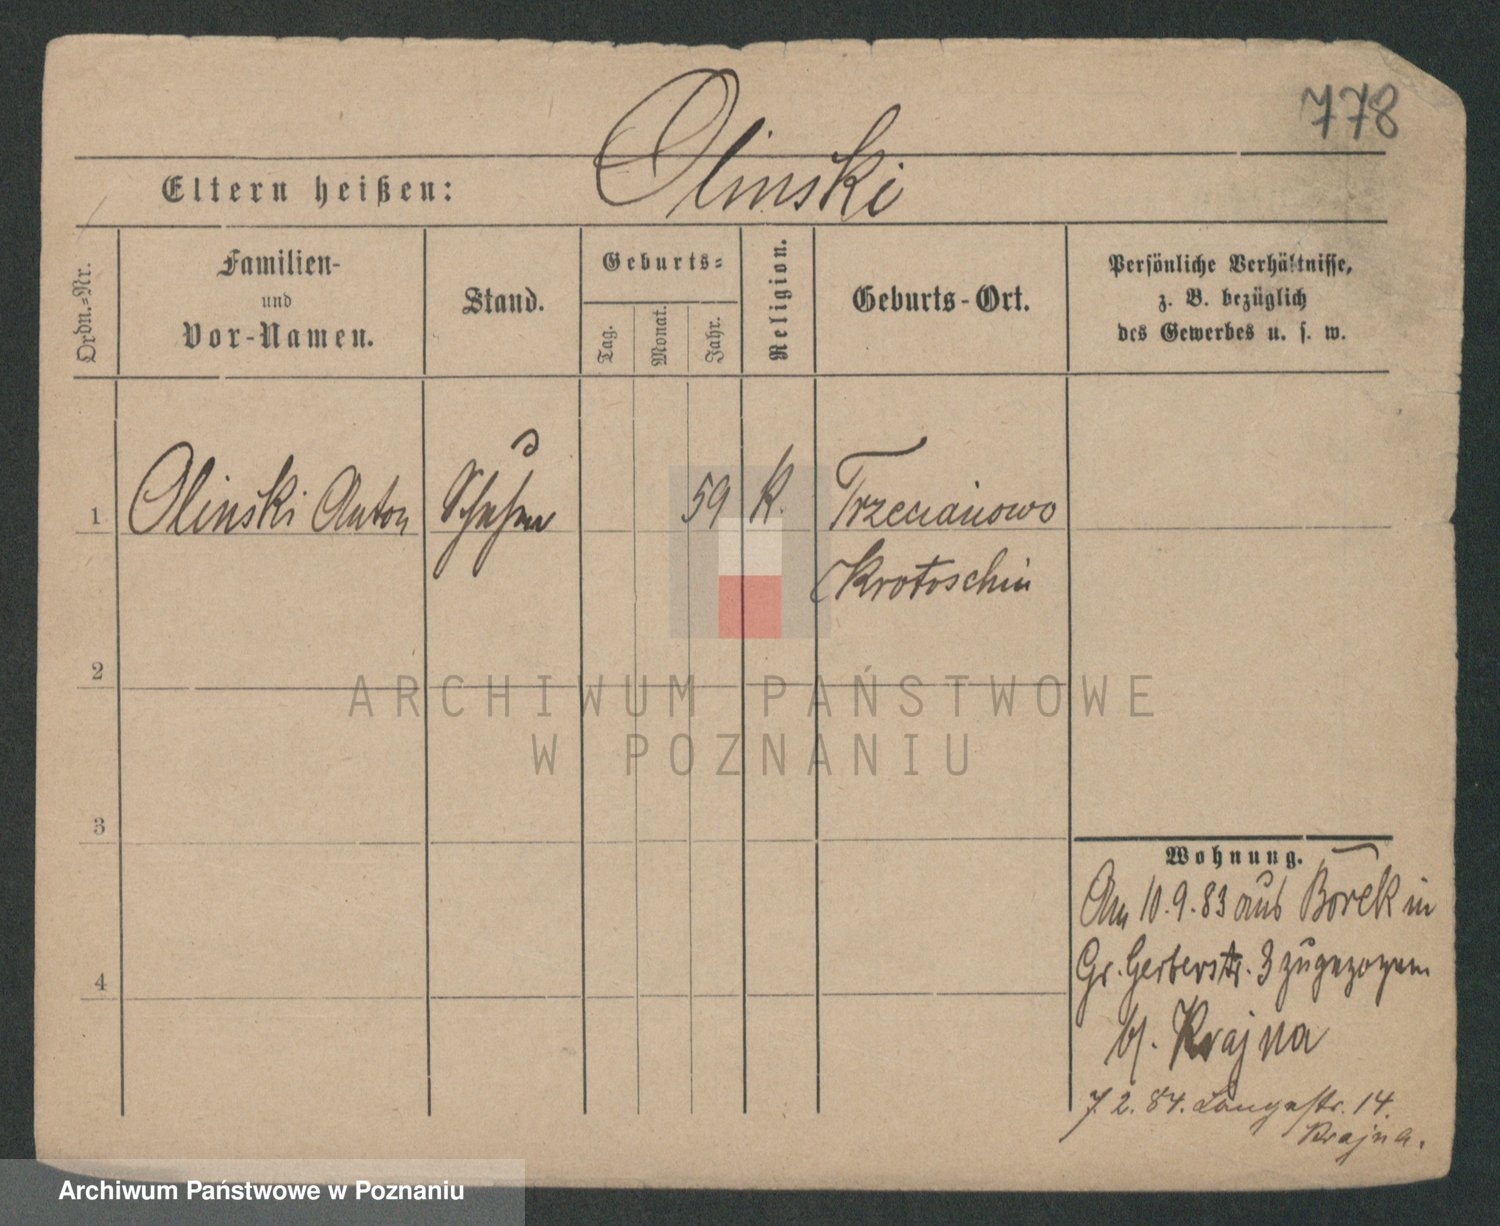 778
Olinski
Eltern heißen:
Ordn.=Nr.
Familien-
und
Vor-Namen.
Stand.
Geburts=
Tag.
Monat.
Jahr.
Religion.
Geburts-Ort.
Persönliche Verhältnisse,
z. B. bezüglich
des Gewerbes u. s. w.
1 Olinski Anton 59 K. Trzecianowo
Krotoschin
2
3
4
Wohnung.
Am 10.9.83 aus Borek in
Gr. Gerberstr. 3 zugezogen
b/. Krajna
7.2.84. Langestr. 14.
Krajna.
ARCHIWUM PAŃSTWOWE
W POZNANIU
Archiwum Państwowe w Poznaniu